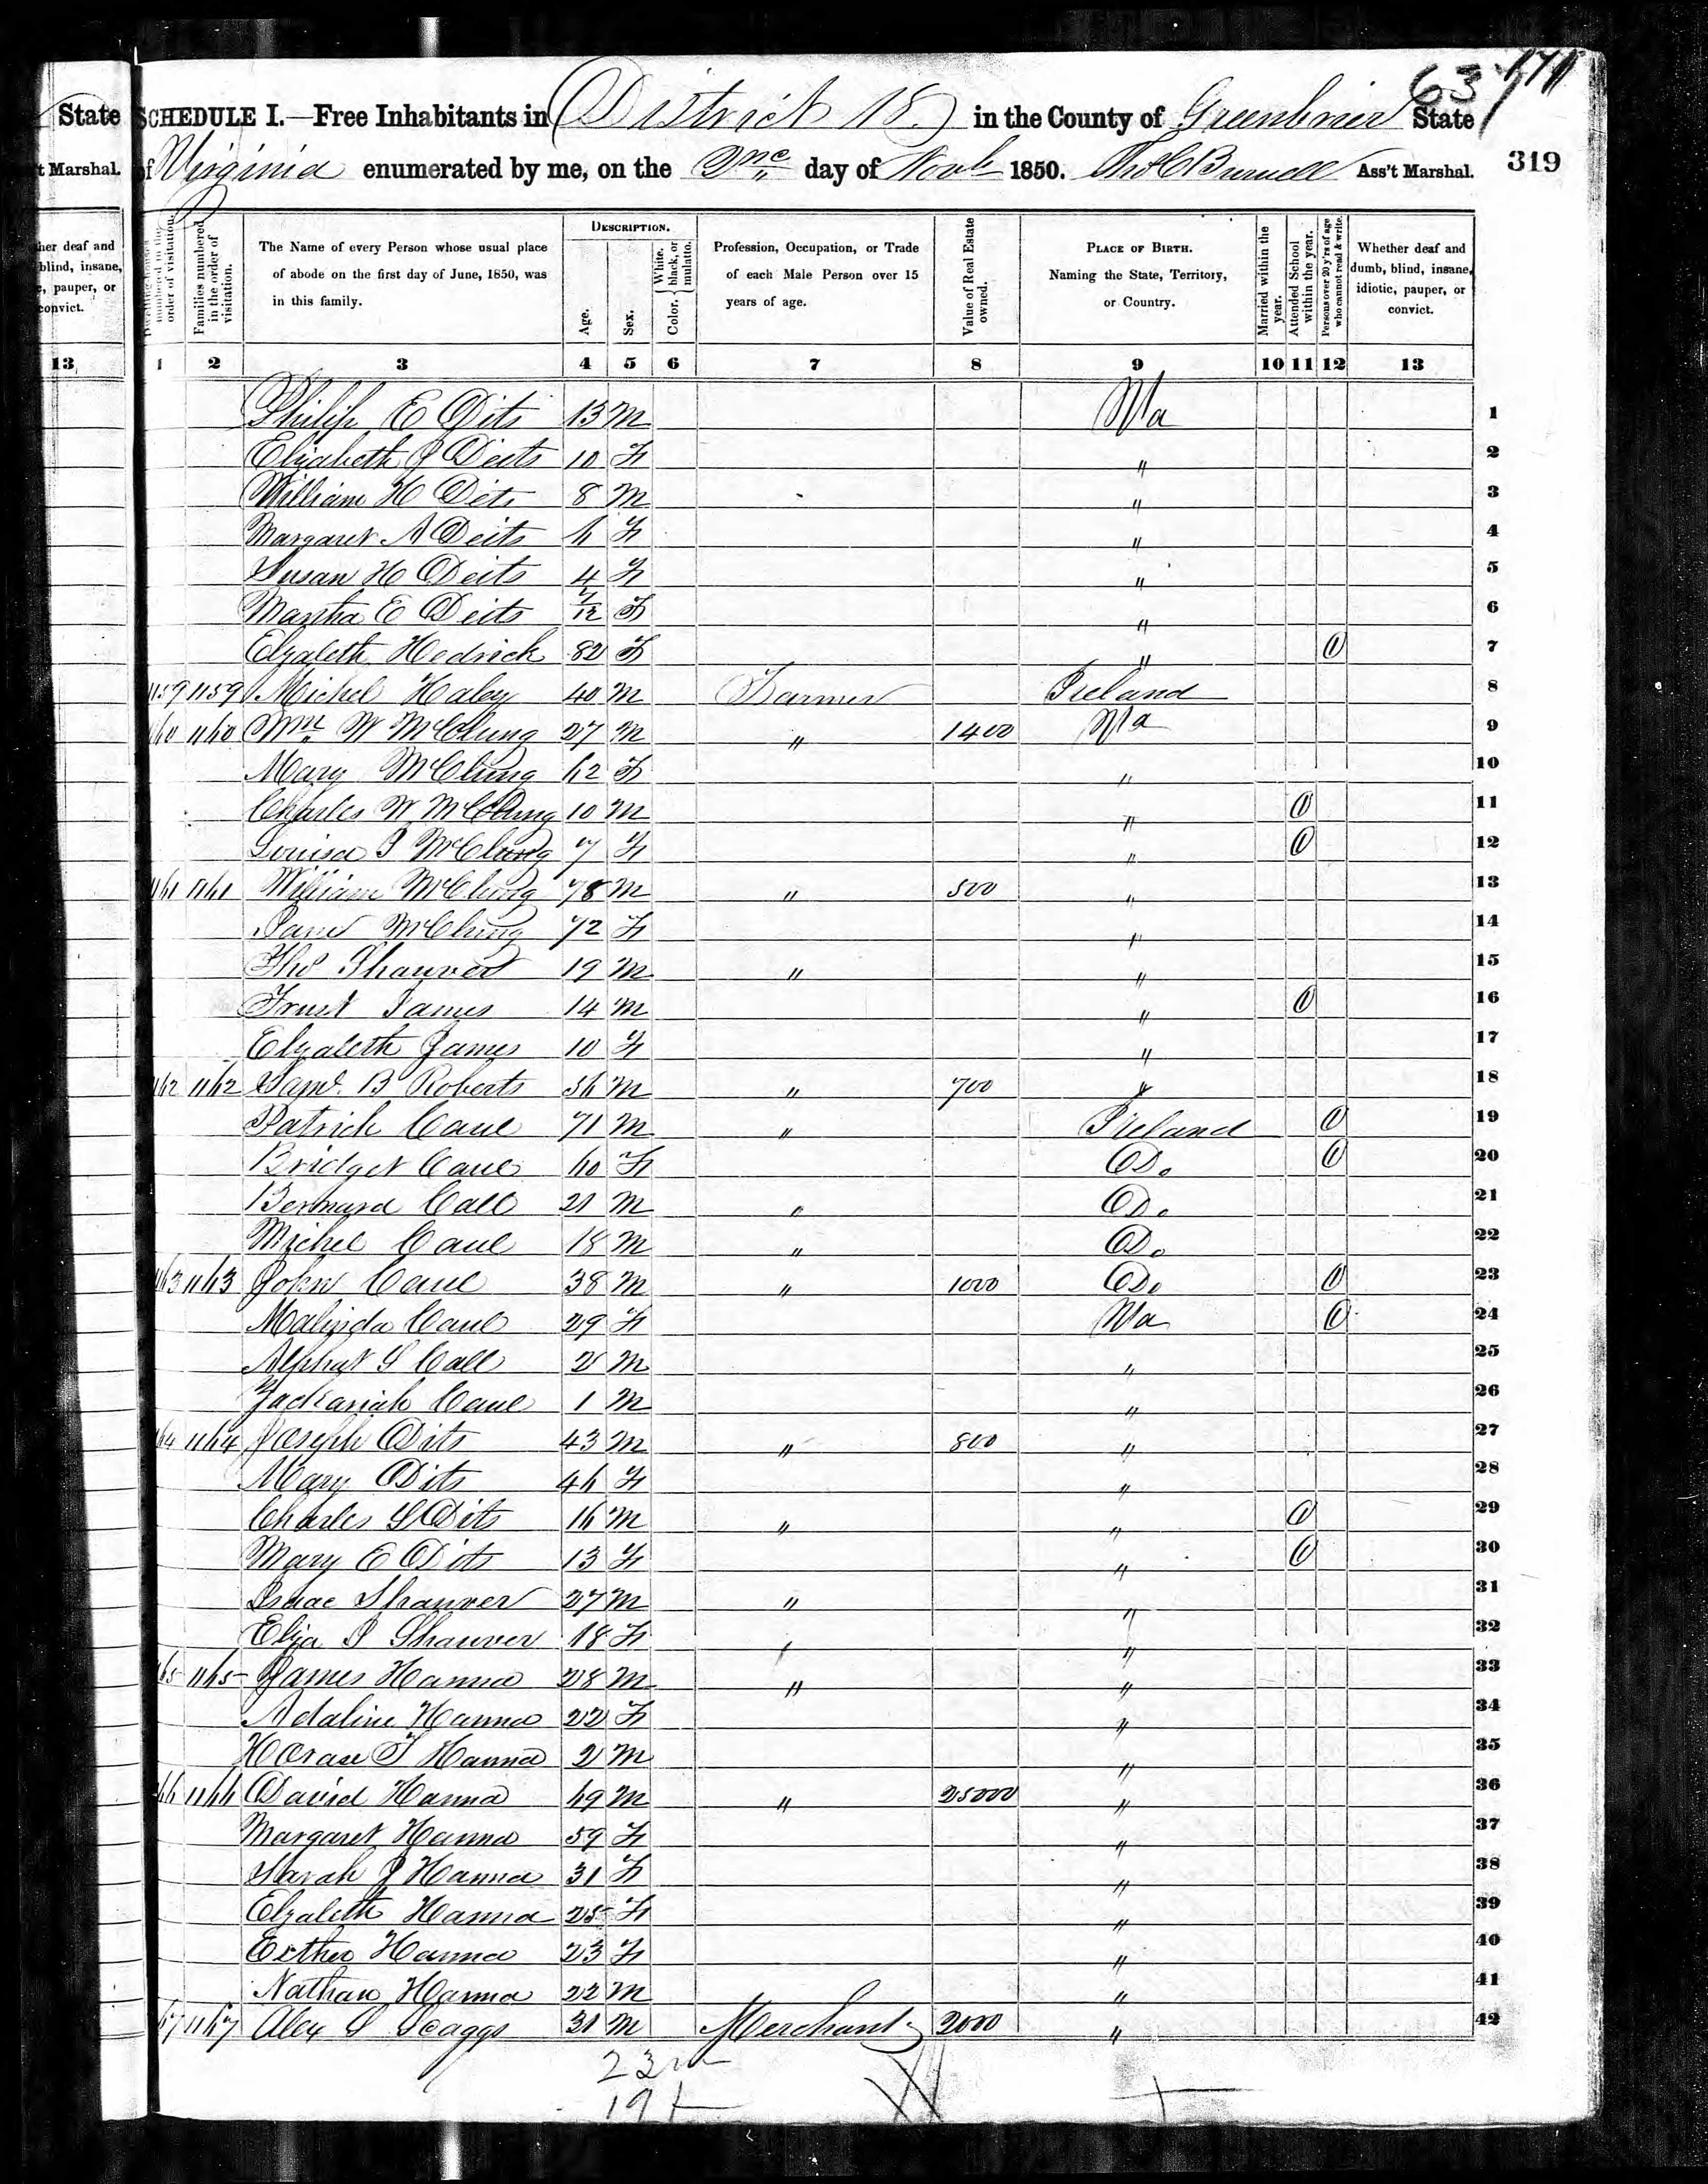 63 171
State SCHEDULE I.—Free Inhabitants in District 18 in the County of Greenbrier State
t Marshal. of Virginia enumerated by me, on the 2nd day of Novb 1850. Ass't Marshal. 319
her deaf and
blind, insane,
e, pauper, or
convict.
13
Dwelling-houses numbered in the order of visitation.
Families numbered in the order of visitation.
The Name of every Person whose usual place
of abode on the first day of June, 1850, was
in this family.
DESCRIPTION.
Age.
Sex.
Color, { White, black, or mulatto.
Profession, Occupation, or Trade
of each Male Person over 15
years of age.
Value of Real Estate owned.
PLACE OF BIRTH.
Naming the State, Territory,
or Country.
Married within the year.
Attended School within the year.
Persons over 20 y'rs of age who cannot read & write.
Whether deaf and
dumb, blind, insane,
idiotic, pauper, or
convict.
1 2 3 4 5 6 7 8 9 10 11 12 13
Philip E Dits 13 M Va 1
Elizabeth J Deits 10 F " 2
William H Dits 8 M " 3
Margaret A Deits 6 F " 4
Susan H Deits 4 F " 5
Martha E Deits 7/12 F " 6
Elzabeth Hedrick 82 F " 1 7
1159 1159 Michel Haley 40 M Farmer Ireland 8
1160 1160 Wm W McClung 27 M " 1400 Va 9
Mary McClung 62 F " 10
Charles W McClung 10 M " 1 11
Louisa J McClung 7 F " 1 12
1161 1161 William McClung 78 M " 500 " 13
Jane McClung 72 F " 14
Thos Shauver 19 M " " 15
Trust James 14 M " 1 16
Elzabeth James 10 F " 17
1162 1162 Saml. B Roberts 36 M " 700 " 18
Patrick Caul 71 M " Ireland 1 19
Bridget Caul 60 F Do. 1 20
Bernard Call 21 M " Do. 21
Michel Caul 18 M " Do 22
1163 1163 John Caul 38 M " 1000 Do 1 23
Malinda Caul 29 F Va 1 24
S Call 2 M " 25
Zackariah Caul 1 M " 26
1164 1164 Joseph Dits 43 M " 800 " 27
Mary Dits 46 F " 28
Charles S Dits 16 M " " 1 29
Mary E Dits 13 F " 1 30
Isaac Shauver 27 M " " 31
Eliza J Shauver 18 F " 32
1165 1165 James Hanna 28 M " " 33
Adaline Hanna 22 F " 34
Horace T Hanna 2 M " 35
1166 1166 David Hanna 69 M " 25000 " 36
Margaret Hanna 59 F " 37
Sarah J Hanna 31 F " 38
Elzabeth Hanna 25 F " 39
Esther Hanna 23 F " 40
Nathan Hanna 22 M " 41
1167 1167 Alex S Scaggs 31 M Merchant 2000 " 42
23 m
19 f